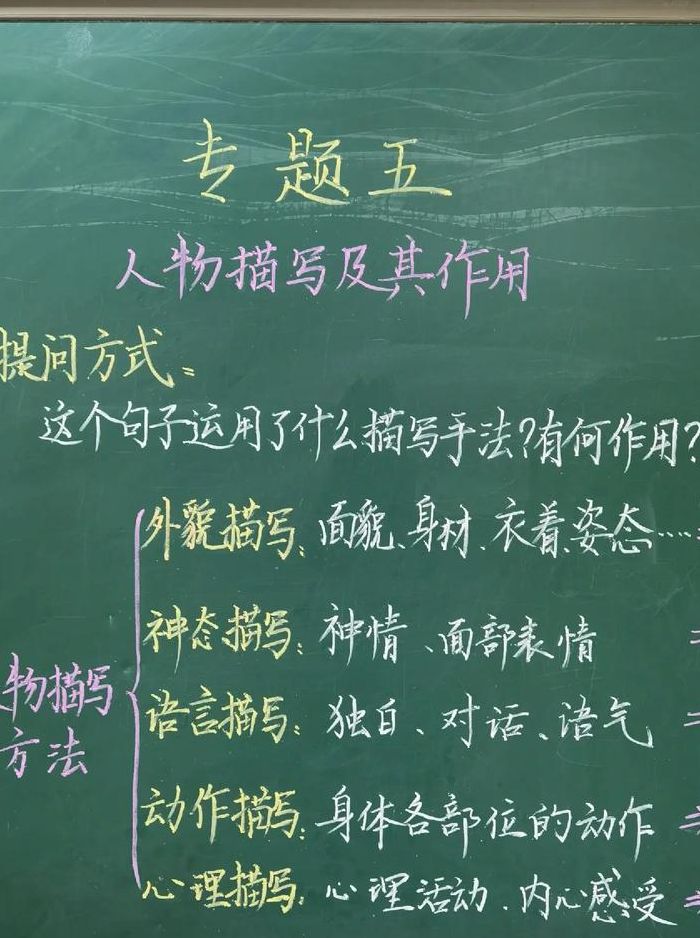 专题五
人物描写及其作用
提问方式：
这个句子运用了什么描写手法？有何作用？
外貌描写：面貌、身材、衣着、姿态……
神态描写：神情、面部表情
物描写
方法
语言描写：独白、对话、语气
动作描写：身体各部位的动作
心理描写：心理活动、内心感受